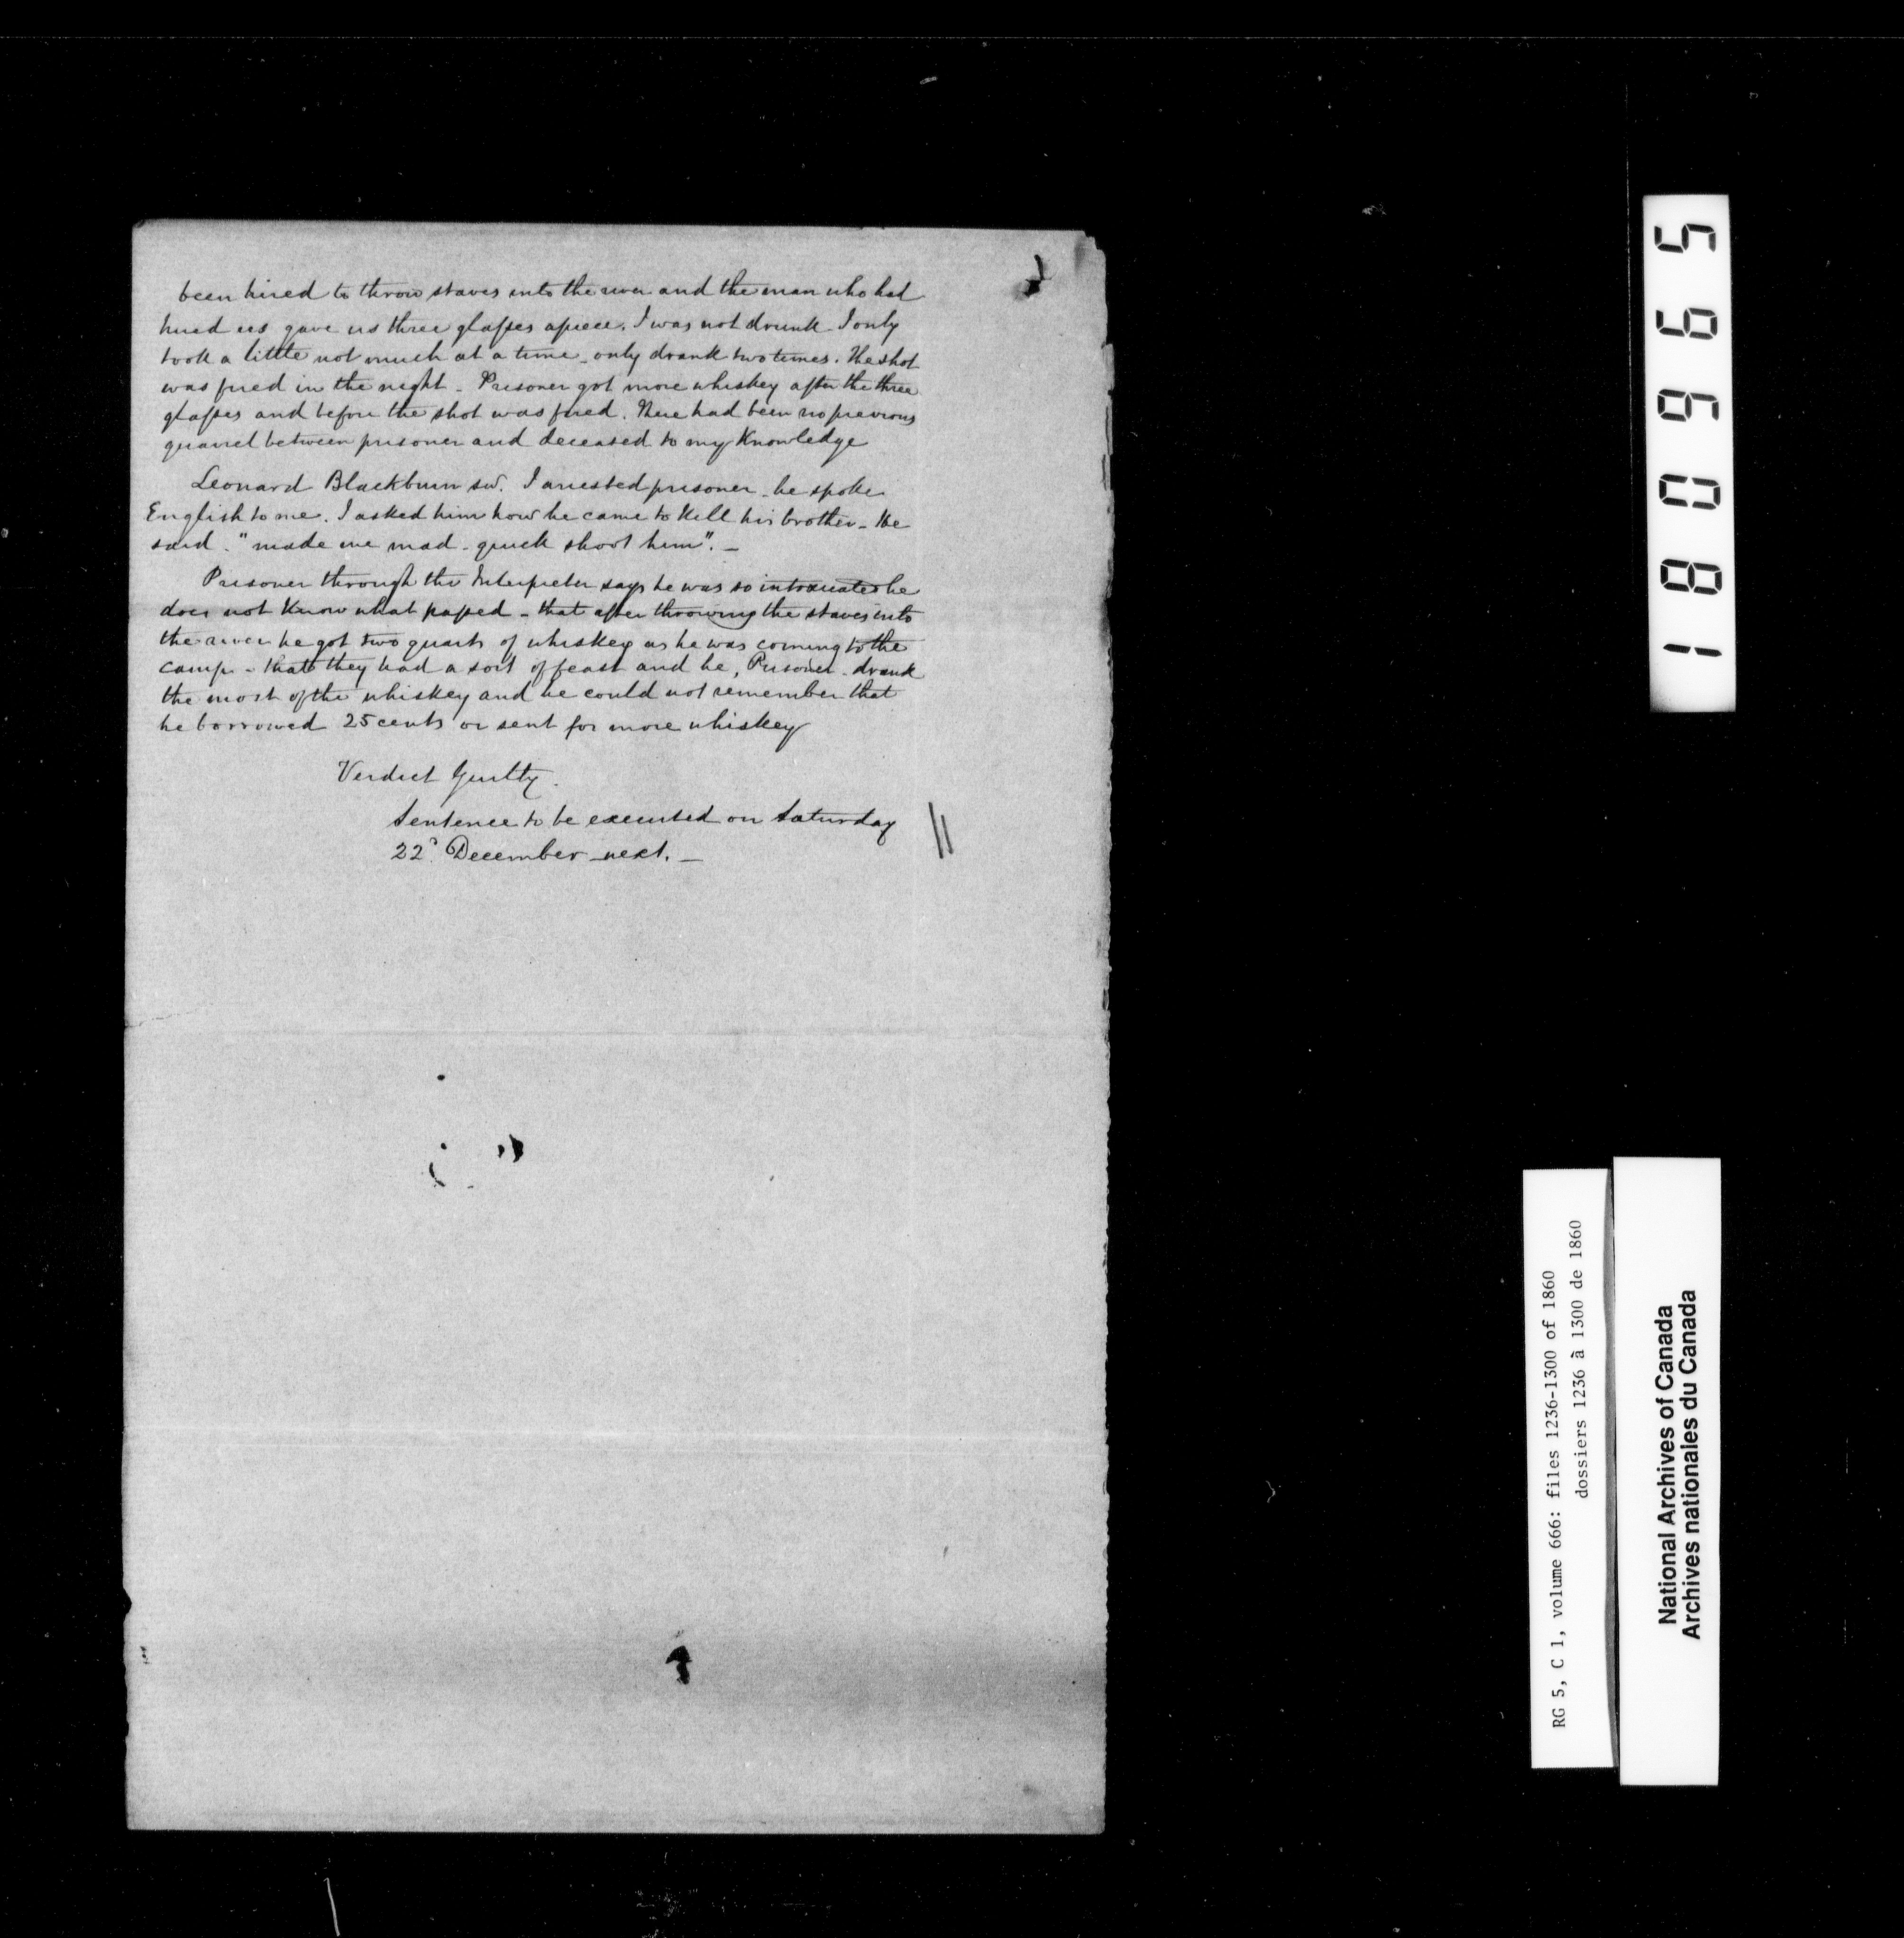 been hired to throw staves into the river and the man who had
hired us gave us three glasses apiece. I was not drunk - I only
took a little not much at a time - only drank two times. The shot
was fired in the night - Prisoner got more whiskey after the three
glasses and before the shot was fired. There had been no previous
quarrel between prisoner and deceased to my Knowledge
Leonard Blackburn sw. I arrested prisoner - he spoke
English to me. I asked him how he came to Kill his brother - He
said - "made me mad - quick shoot him". -
Prisoner through the Interpreter says he was so intoxicated he
does not Know what passed - that after throwing the staves into
the river he got two quarts of whiskey as he was coming to the
camp - that they had a sort of feast and he, Prisoner - drank
the most of the whiskey and he could not remember that
he borrowed 25 cents or sent for more whiskey
Verdict Guilty.
Sentence to be executed on Saturday
22d December next. -
180965
RG 5, C 1, volume 666: files 1236-1300 of 1860
dossiers 1236 à 1300 de 1860
National Archives of Canada
Archives nationales du Canada